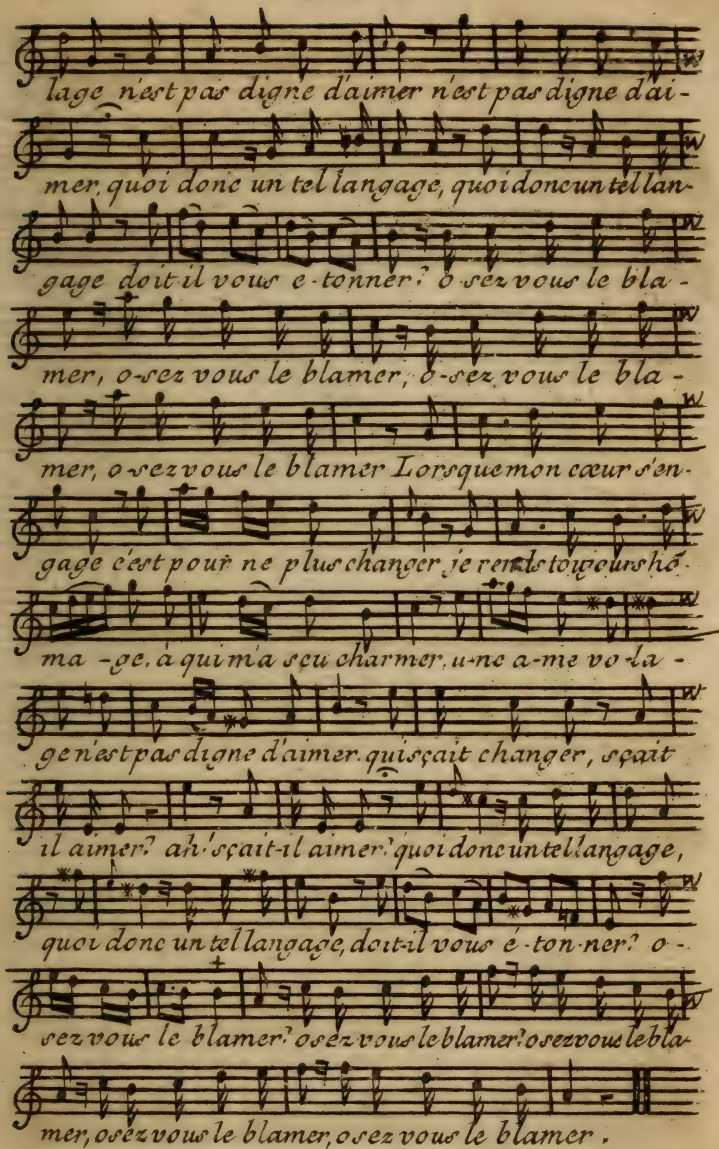 lage n'est pas digne d'aimer n'est pas digne d'ai-
mer, quoi donc un tel langage, quoi donc un tel lan-
gage doit il vous e-tonner? o sez vous le bla-
mer, o-sez vous le blamer, o-sez vous le bla-
mer, o-sez vous le blamer Lorsque mon cœur s'en-
gage c'est pour ne plus changer, je rends toujours hô-
ma-ge, à qui m'a sçu charmer, u-ne a-me vo-la-
ge n'est pas digne d'aimer. qui sçait changer, sçait
il aimer? ah! sçait-il aimer? quoi donc un tel langage,
quoi donc un tel langage, doit-il vous é-ton-ner? o-
sez vous le blamer? osez vous le blamer? osez vous le bla-
mer, osez vous le blamer, osez vous le blamer.